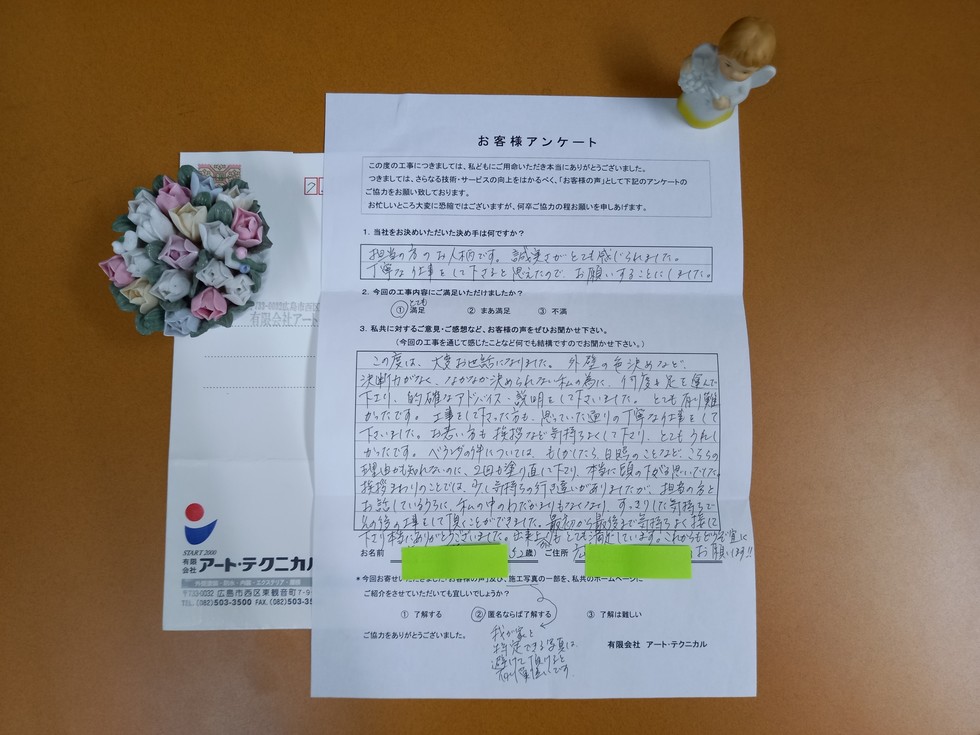 お客様アンケート
この度の工事につきましては、私どもにご用命いただき本当にありがとうございました。
つきましては、さらなる技術・サービスの向上をはかるべく、「お客様の声」として下記のアンケートの
ご協力をお願い致しております。
お忙しいところ大変に恐縮ではございますが、何卒ご協力の程お願いを申しあげます。
1. 当社をお決めいただいた決め手は何ですか？
担当の方のお人柄です。誠実さがとても感じられました。
丁寧な仕事をして下さると思えたので、お願いすることにしました。
2. 今回の工事内容にご満足いただけましたか？
とても
① 満足 ② まあ満足 ③ 不満
3. 私共に対するご意見・ご感想など、お客様の声をぜひお聞かせ下さい。
（今回の工事を通じて感じたことなど何でも結構ですのでお聞かせ下さい。）
この度は、大変お世話になりました。外壁の色決めなど、
決断力がなく、なかなか決められない私の為に、何度も足を運んで
下さり、的確なアドバイス・説明をして下さいました。とても有り難
かったです。工事をして下さった方も、思っていた通りの丁寧な仕事をして
下さいました。お若い方も挨拶など気持ちよくして下さり、とてもうれし
かったです。ベランダの件については、もしかしたら、目地のことなど、こちらの
理由かも知れないのに、2回も塗り直して下さり、本当に頭の下がる思いでした。
挨拶まわりのことでは、少し気持ちの行き違いがありましたが、担当の方と
お話しているうちに、私の中のわだかまりもなくなり、すっきりした気持ちで
その後の工事をして頂くことができました。最初から最後まで気持ちよく接して
下さり本当にありがとうございました。出来上がりもとても満足しています。これからもどうぞ宜しく
お願いします!!
お名前 52歳） ご住所
＊今回お寄せいただきました「お客様の声」及び、施工写真の一部を、私共のホームページに
ご紹介をさせていただいても宜しいでしょうか？
① 了解する ② 匿名ならば了解する ③ 了解は難しい
ご協力をありがとうございました。
我が家と
特定できる写真は、
避けて頂けると
有り難いです。
有限会社 アート・テクニカル
広島市西区
有限会社アート
START 2000
有限会社 アート・テクニカル
外壁塗装・防水・内装・エクステリア・造園
〒733-0032 広島市西区東観音町7-9
TEL.(082)503-3500 FAX.(082)503-3